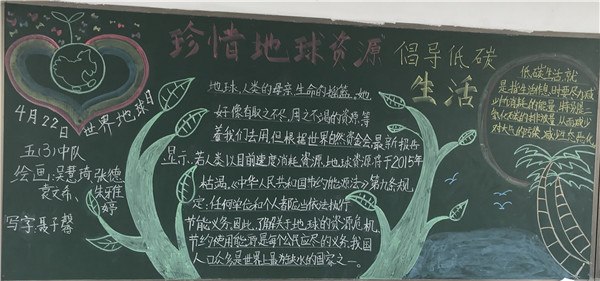 珍惜地球资源
倡导低碳
生活
4月22日世界地球日
五(3)中队
绘画:吴慧琦 张德
袁文希、朱雅
婷
写字:聂子馨
地球,人类的母亲,生命的摇篮,她
好像有取之不尽,用之不竭的资源,等
着我们去用,但根据世界自然资会会最新报告
显示,若人类以目前速度消耗资源,地球资源将于2015年
枯竭。《中华人民共和国节约能源法》第九条规
定:任何单位和个人都应当依法执行
节能义务,因此,了解关于地球的资源危机,
节约使用能源是每个公民应尽的义务,我国
人口众多是世界上最为缺水的国家之一。
低碳生活就
是指生活作息时要尽力减
少所消耗的能量,特别是二
氧化碳的排放量,从而减少
对大气的污染,减少生态恶化